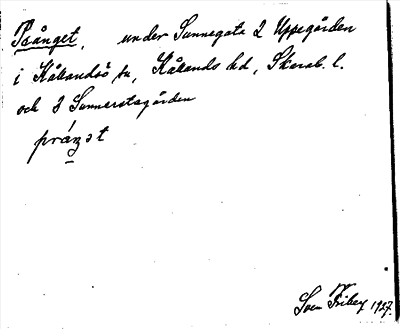 Prånget, under Sunnegata 2 Uppgården
i Kållandsö sn, Kållands hd, Skarab. l.
och 3 Sunnerstagården
práŋət
Sven Friberg 1927.